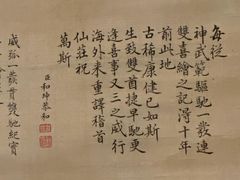 每從
神武範驅馳一發連
雙喜繪之記得十年
前此地
古稀康健已如斯
生致雙酋捷早馳更
逢喜事又三之威行
海外來重譯稽首
仙莊祝
萬斯
臣和珅恭和
威弧一發貫雙馳紀實